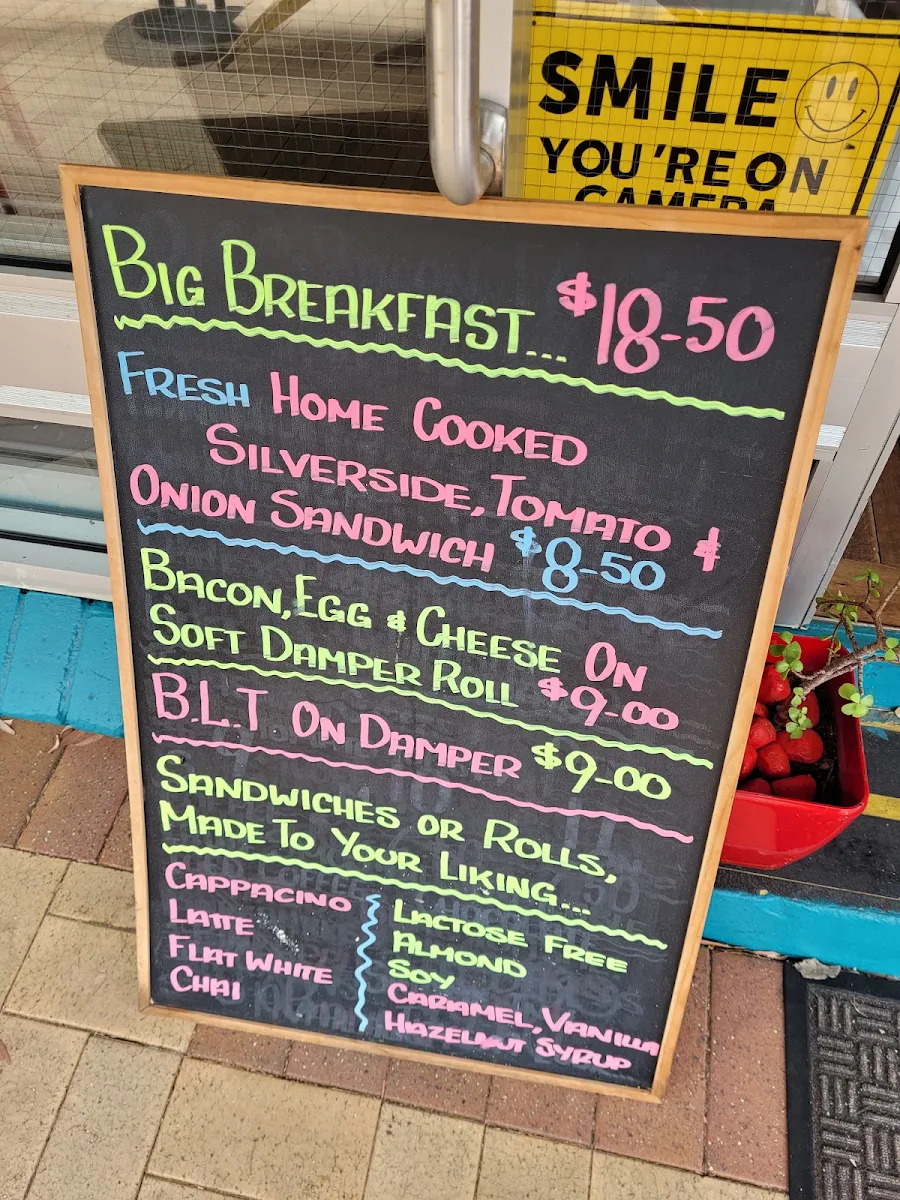 SMILE
YOU'RE ON
CAMERA
BIG BREAKFAST... $18-50
FRESH HOME COOKED
SILVERSIDE, TOMATO &
ONION SANDWICH $8-50
BACON, EGG & CHEESE ON
SOFT DAMPER ROLL $9-00
B.L.T ON DAMPER $9-00
SANDWICHES OR ROLLS,
MADE TO YOUR LIKING...
CAPPACINO
LATTE
FLAT WHITE
CHAI
LACTOSE FREE
ALMOND
SOY
CARAMEL, VANILLA
HAZELNUT SYRUP